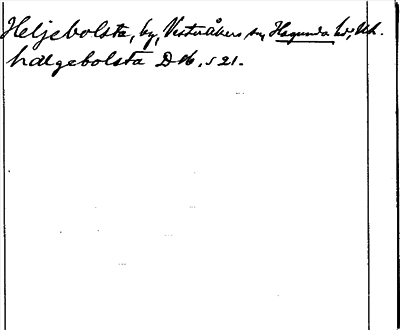 Heljebolsta, by, Vesteråkers sn, Hagunda hd, Uh.
halgebolsta D16. s 21.